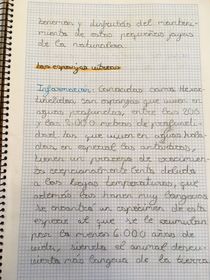 tenemos y disfrutéis del manteni-
miento de estas pequeñas joyas
de la naturaleza.
Las esponjas vítreas
Información: Conocidas como Hexac-
tinélidas, son esponjas que viven en
aguas profundas, entre los 200
y los 2.000 metros de profundi-
dad, las que viven en aguas hela-
das en especial las antárticas,
tienen un proceso de crecimien-
to excepcionalmente lento debido
a las bajas temperaturas, que
además las hacen muy longevas.
Se encontró un espécimen de esta
especie al que se le acumulan
por lo menos 6.000 años de
vida, siendo el animal descu-
bierto más longevo de la tierra